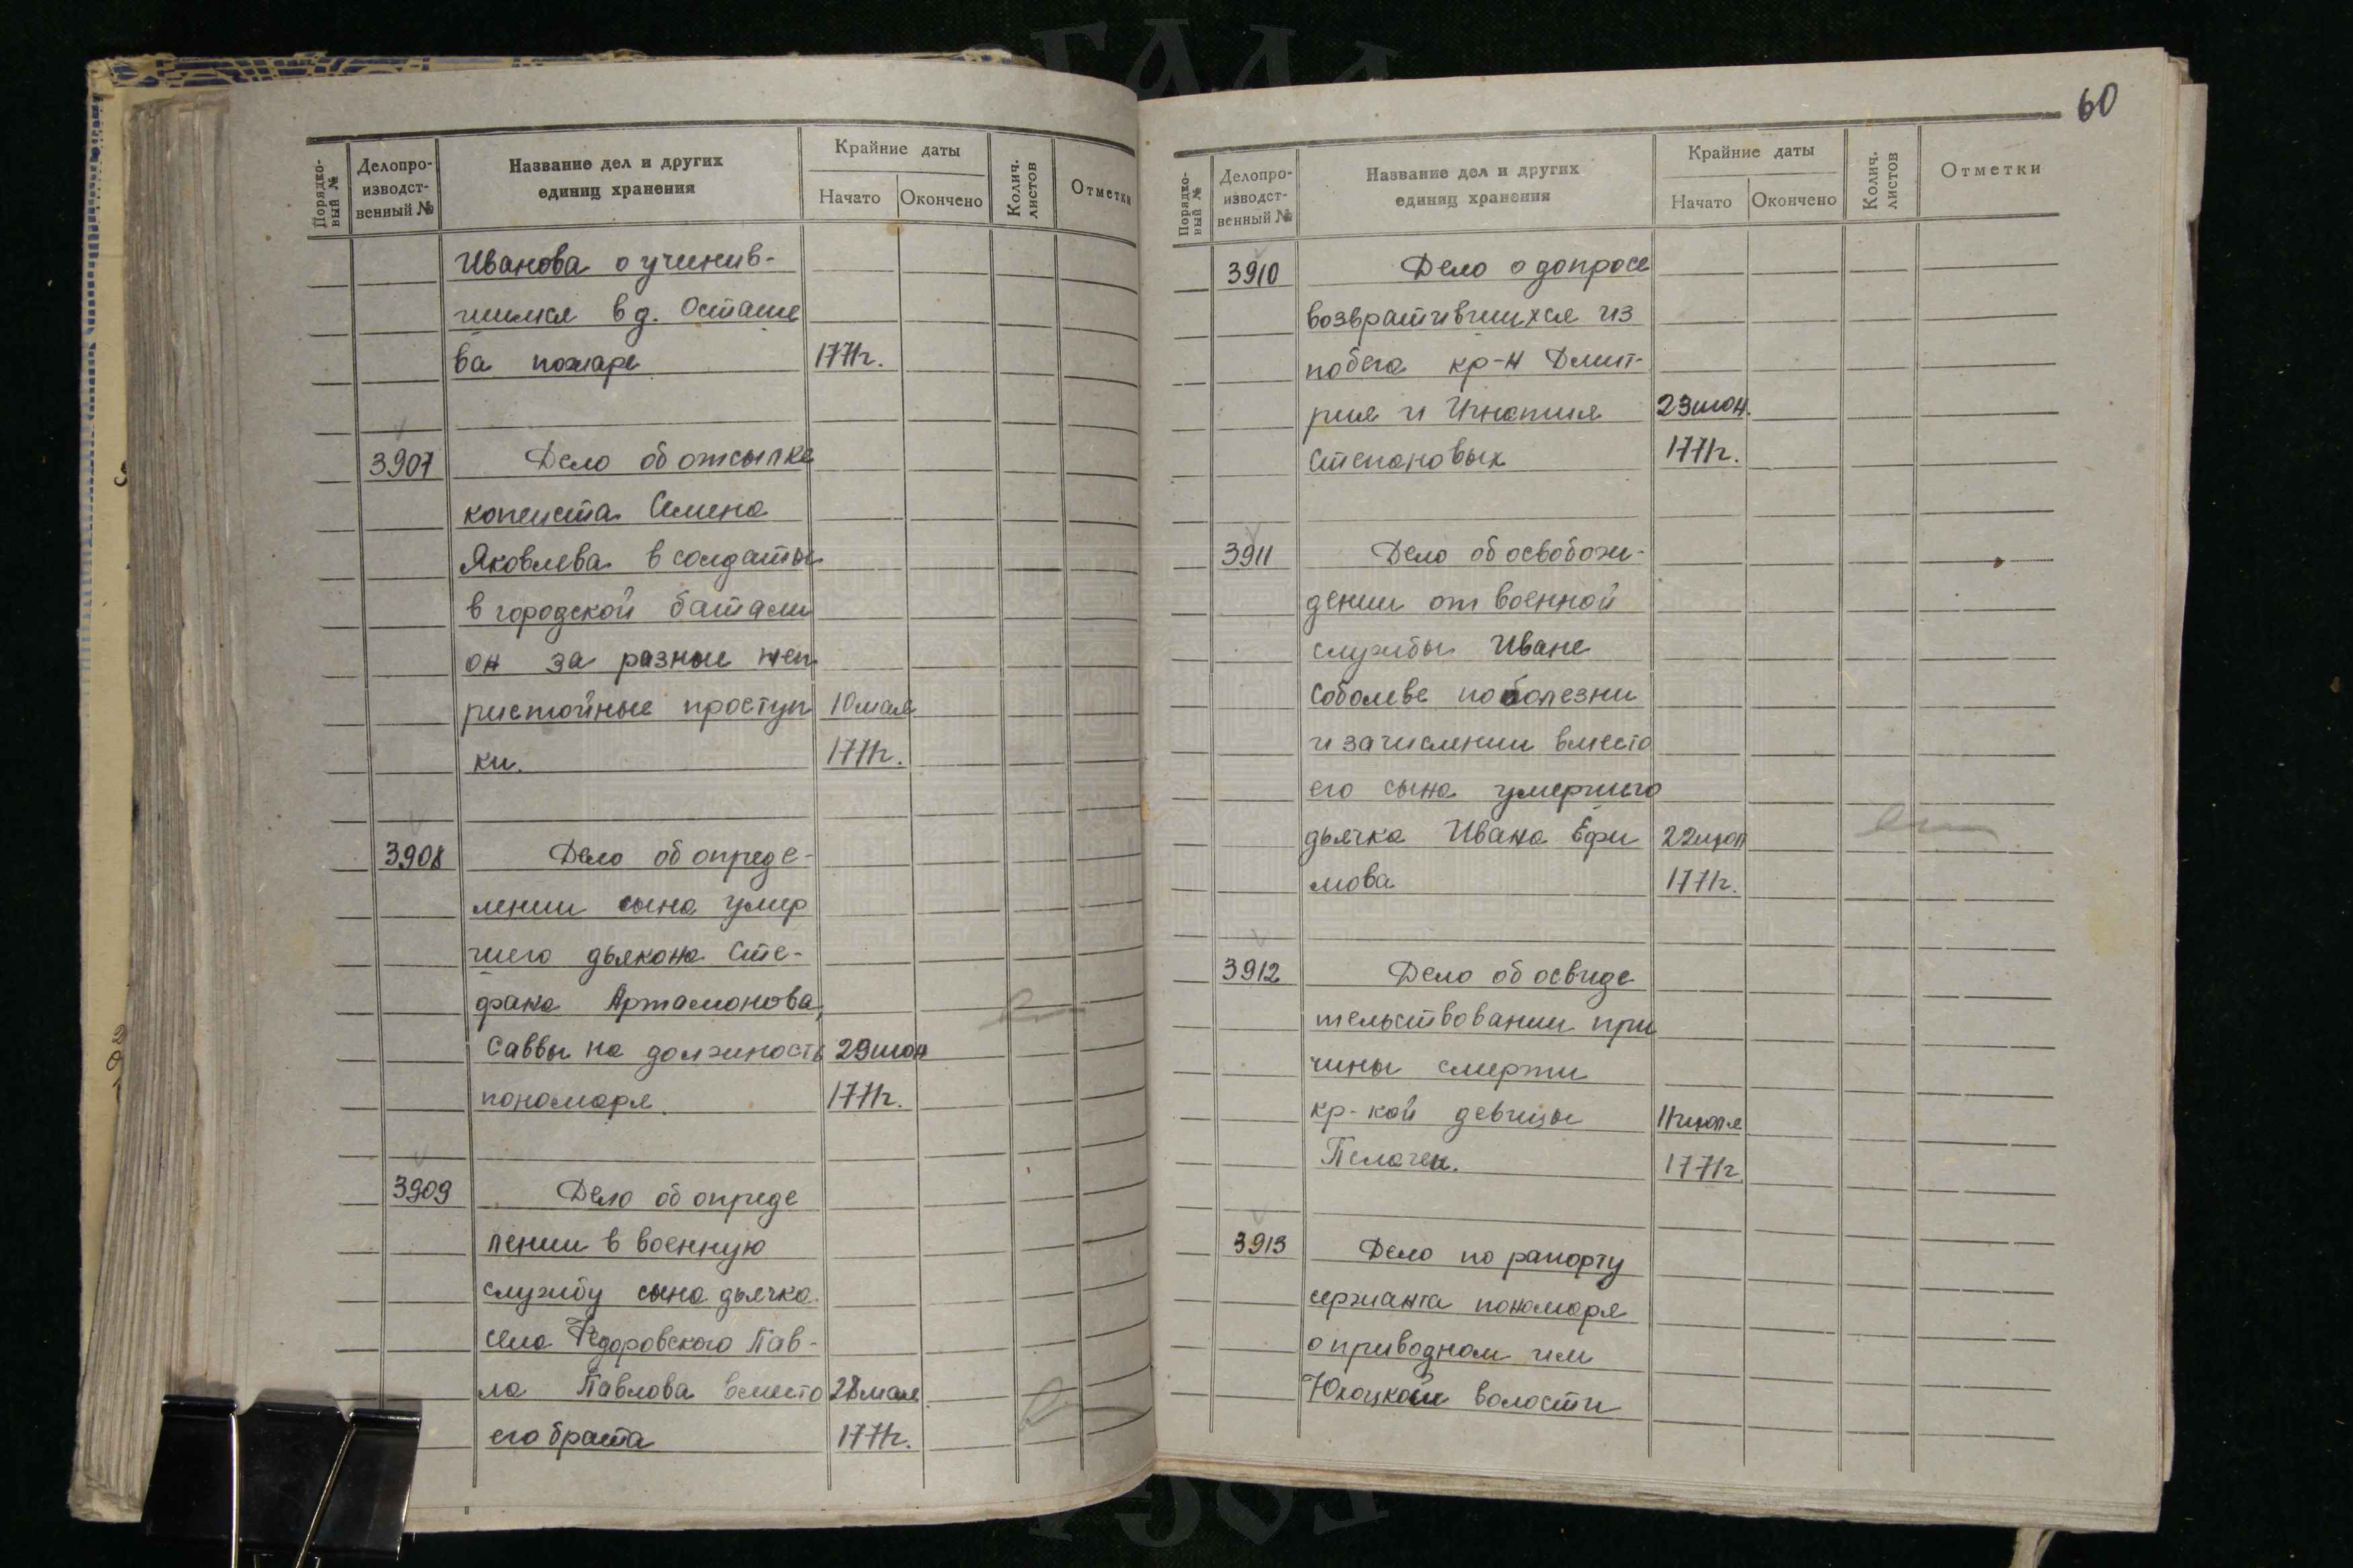 Порядко-
вый №
Делопро-
изводст-
венный №
Название дел и других
единиц хранения
Крайние даты
Начато
Окончено
Колич.
листов
Отметки
Иванова о учинив-
шимся в д. Осташе
ва пожаре 1771г.
3907 Дело об отсылке
копеиста Семена
Яковлева в солдаты
в городской батали
он за разные неп
ристойные проступ 10 мая
ки. 1771г.
3908 Дело об опреде-
лении сына умер
шего дьякона Сте-
фана Артамонова,
Саввы на должность 29 июн
пономаря. 1771г.
3909 Дело об опреде
лении в военную
службу сына дьячка
села Федоровского Пав-
ла Павлова вместо 28 мая
его брата 1771г.
60
Порядко-
вый №
Делопро-
изводст-
венный №
Название дел и других
единиц хранения
Крайние даты
Начато
Окончено
Колич.
листов
Отметки
3910 Дело о допросе
возвратившихся из
побега кр-н Дмит-
рия и Игнатия 23 июн.
Степановых 1771г.
3911 Дело об освобож-
дении от военной
службы Иване
Соболеве по болезни
и зачислении вместо
его сына умершего
дьячка Ивана Ефи 22 июл
мова 1771г.
3912 Дело об освиде
тельствовании при
чины смерти
кр-кой девицы 11 июля
Пелагеи. 1771г
3913 Дело по рапорту
сержанта пономаря
о приводном им
волости